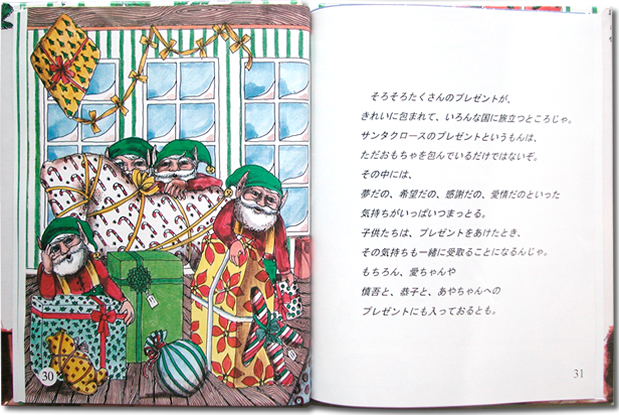 そろそろたくさんのプレゼントが、
きれいに包まれて、いろんな国に旅立つところじゃ。
サンタクロースのプレゼントというもんは、
ただおもちゃを包んでいるだけではないぞ。
その中には、
夢だの、希望だの、感謝だの、愛情だのといった
気持ちがいっぱいつまっとる。
子供たちは、プレゼントをあけたとき、
その気持ちも一緒に受取ることになるんじゃ。
もちろん、愛ちゃんや
慎吾と、恭子と、あやちゃんへの
プレゼントにも入っておるとも。
30
31